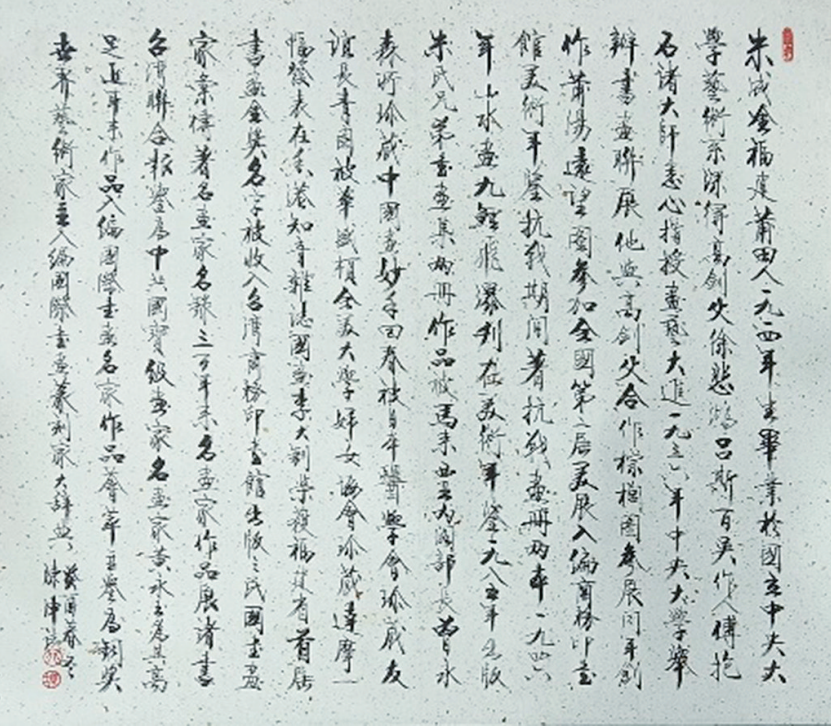 朱成淦福建莆田人一九一四年生畢業於國立中央大
學藝術系深得高劍父徐悲鴻呂斯百吳作人傅抱
石諸大師悉心指授畫藝大進一九三六年中央大學舉
辦書畫聯展他與高劍父合作棕櫚圖參展同年創
作莆陽遠望圖參加全國第二屆美展入編商務印書
館美術年鑒抗戰期間著抗戰畫冊兩本一九四六
年山水畫九鯉飛瀑刊在美術年鑒一九八五年出版
朱氏兄弟書畫集兩冊作品被馬來西亞內閣部長曾永
森所珍藏中國畫妙手回春被日本醫學會珍藏友
誼長青圖被華盛頓全美大學婦女協會珍藏達摩一
幅發表在香港知音雜誌國畫李大釗榮獲福建省首屆
書畫金獎名字被收入台灣商務印書館出版之民國書畫
家彙傳著名畫家名錄三百年來名畫家作品展諸書
台灣聯合報鑒為中共國寶級畫家名畫家黃永玉為其高
足近年來作品入編國際書畫名家作品薈萃并譽為銅獎
世界藝術家并入編國際書畫篆刻家大辭典
癸酉春冬